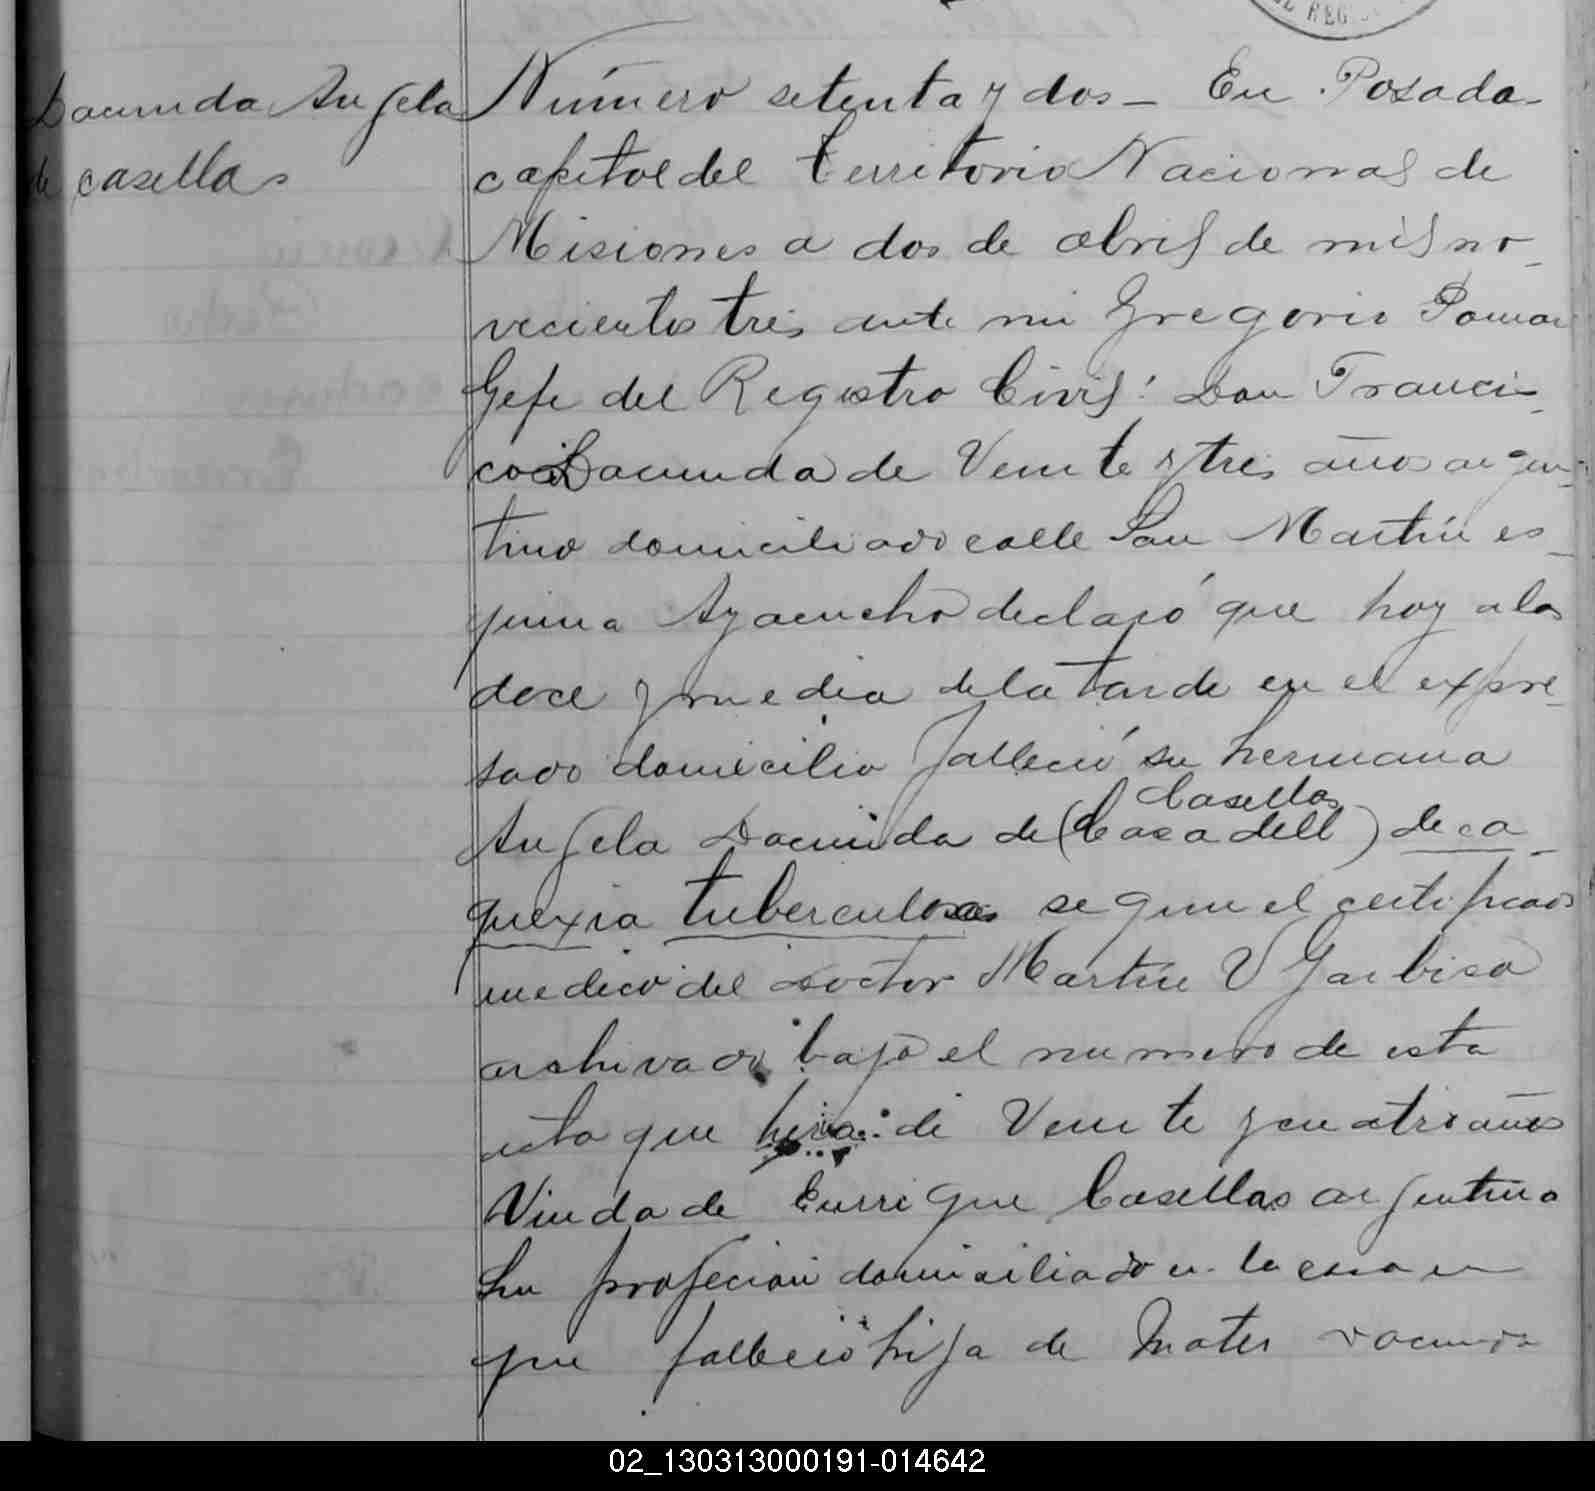 Dacunda Angela
de casellas
Número setenta y dos — En Posada
capital del territorio Nacional de
Misiones a dos de abril de mil no-
vecientos tres ante mi Gregorio Pomar
Gefe del Registro Civil: Don Francis-
co Dacunda de Veinte y tres años argen-
tino domiciliado calle San Martín es-
quina Ayacucho declaró que hoy a las
doce y media de la tarde en el expre-
sado domicilio falleció su hermana
Casellas
Angela Dacunda de (Casadell) de ca-
quexia tuberculosa segun el certificado
medico del Doctor Martin V Garbiso
archivado bajo el numero de esta
acta que era de Veinte y cuatro años
Viuda de Enrique Casellas argentina
sin profecion domiciliado en la casa en
que falleció hija de Dacunda
02_130313000191-014642